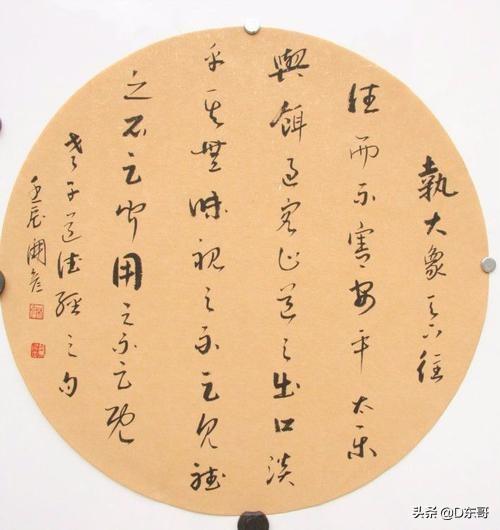 執大象天下往
往而不害安平太樂
與餌過客止道之出口淡
乎其無味視之不足見聽
之不足聞用之不足既
老子道德經之句
壬辰
头条 @D东哥